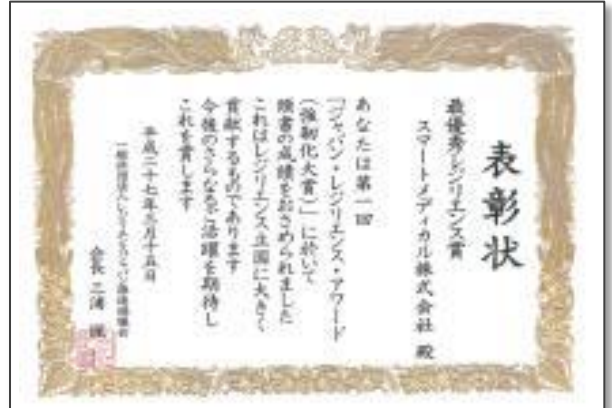 表彰状
最優秀レジリエンス賞
スマートメディカル株式会社 殿
あなたは第一回
「ジャパン・レジリエンス・アワード
(強靭化大賞)」に於いて
頭書の成績をおさめられました
これはレジリエンス立国に大きく
貢献するものであります
今後のさらなるご活躍を期待し
これを賞します
平成二十七年三月十五日
会長 三浦